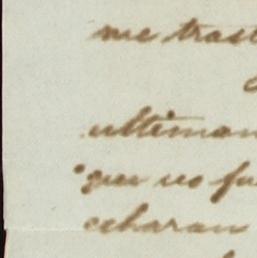 me trast
ultiman
que no fu
echaran